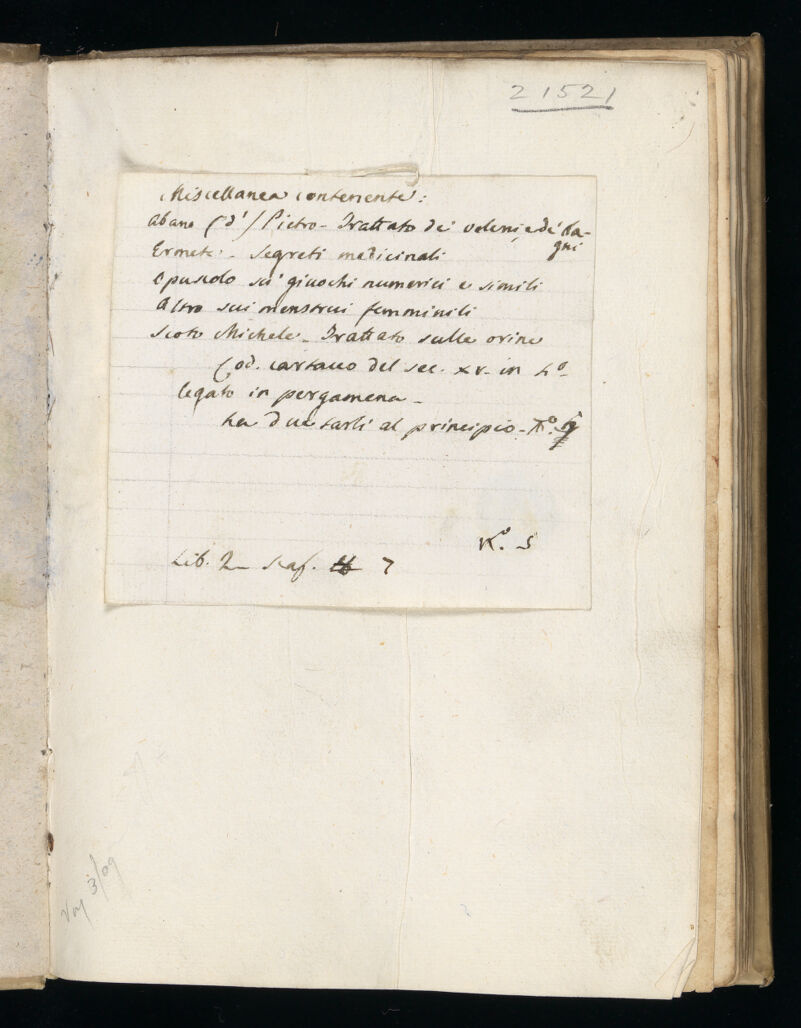 21521
Miscellanea contenente:
Abano (d') Pietro - Trattato de' veleni, e de' ba-
gni
Ermete - Segreti medicinali
Opuscolo su' giuochi numerici e simili
Altro sui menstrui femminili
Scoto Michele - Trattato sulle orine
Cod. cartaceo del sec. XV. in 4º -
legato in pergamena -
ha due tarli al principio -
Nº. 5
Lib. 2 - Scaf. 7
3/09